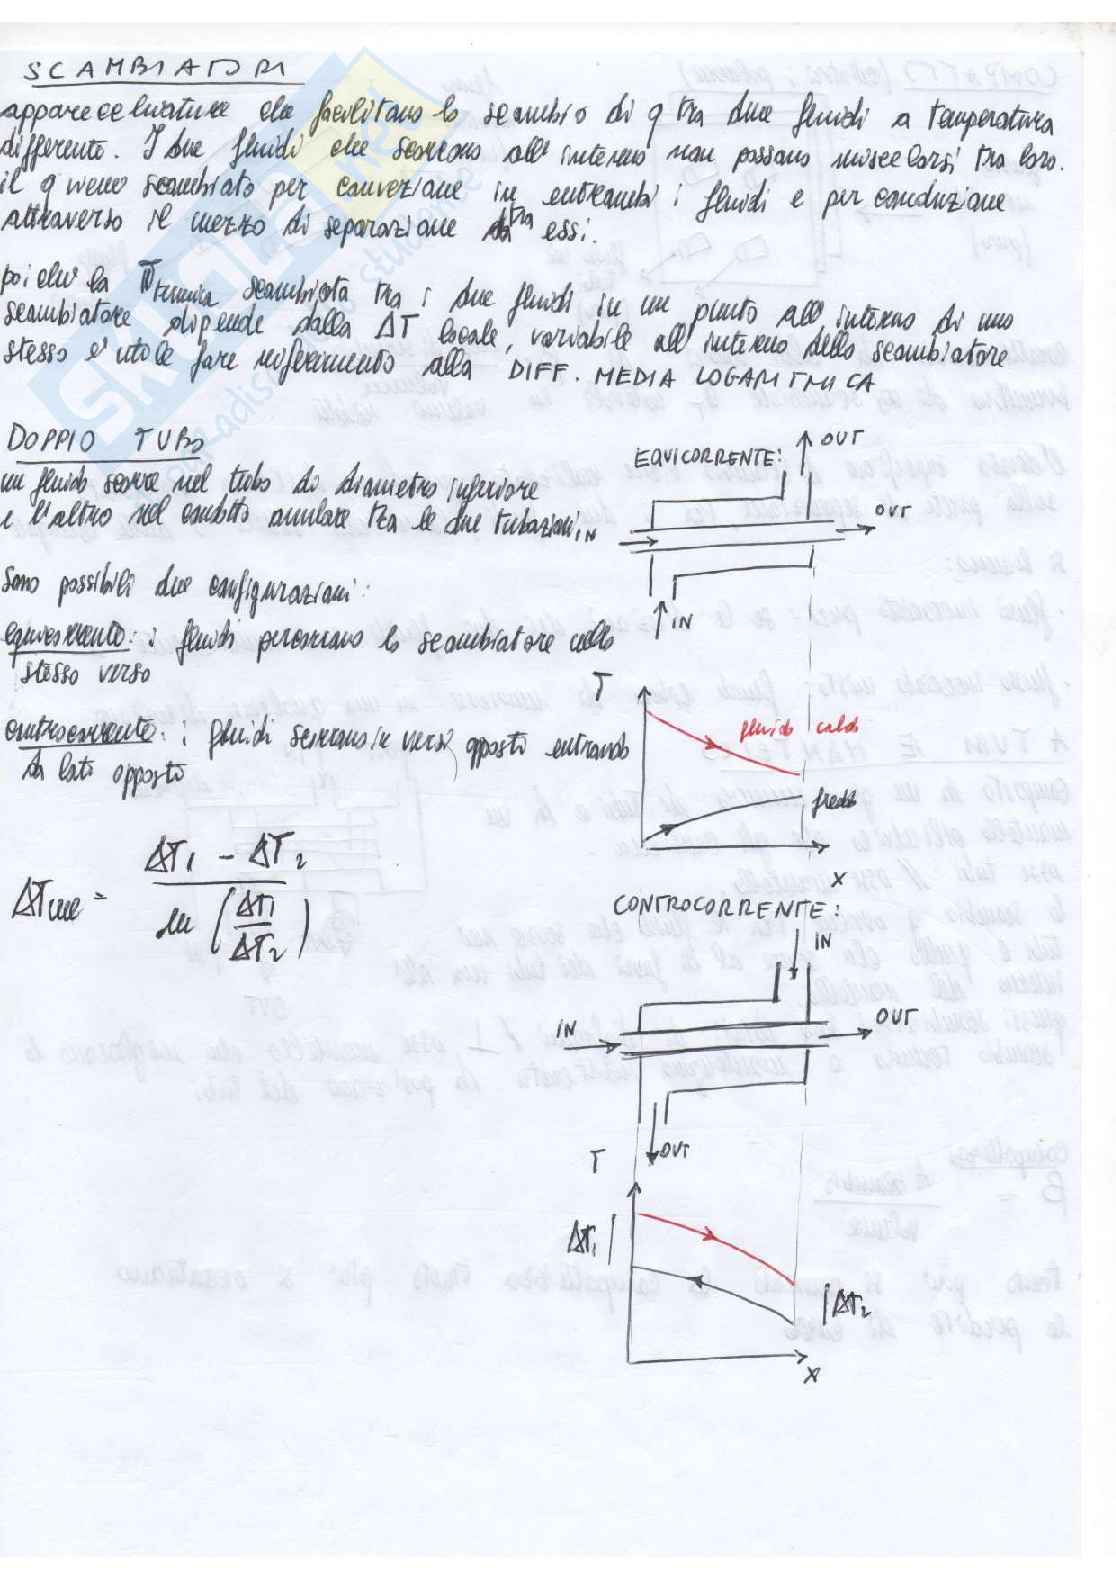 SCAMBIATORI
apparecchiature che facilitano lo scambio di q tra due fluidi a temperatura
differente. I due fluidi che scorrono all'interno non possono miscelarsi tra loro.
il q viene scambiato per convezione in entrambi i fluidi e per conduzione
attraverso il mezzo di separazione tra essi.
poiché la π termica scambiata tra i due fluidi in un punto all'interno di uno
scambiatore dipende dalla ΔT locale, variabile all'interno dello scambiatore
stesso è utile fare riferimento alla DIFF. MEDIA LOGARITMICA
DOPPIO TUBO
un fluido scorre nel tubo di diametro inferiore
e l'altro nel condotto anulare tra le due tubazioni
sono possibili due configurazioni:
equicorrente: i fluidi percorrono lo scambiatore nello
stesso verso
controcorrente: i fluidi scorrono in versi opposti entrando
da lati opposti
ΔTml = ΔT1 - ΔT2 / ln (ΔT1 / ΔT2)
EQUICORRENTE:
OUT
OUT
IN
IN
T
fluido caldo
freddo
x
CONTROCORRENTE:
IN
IN
OUT
OUT
T
ΔT1
ΔT2
x